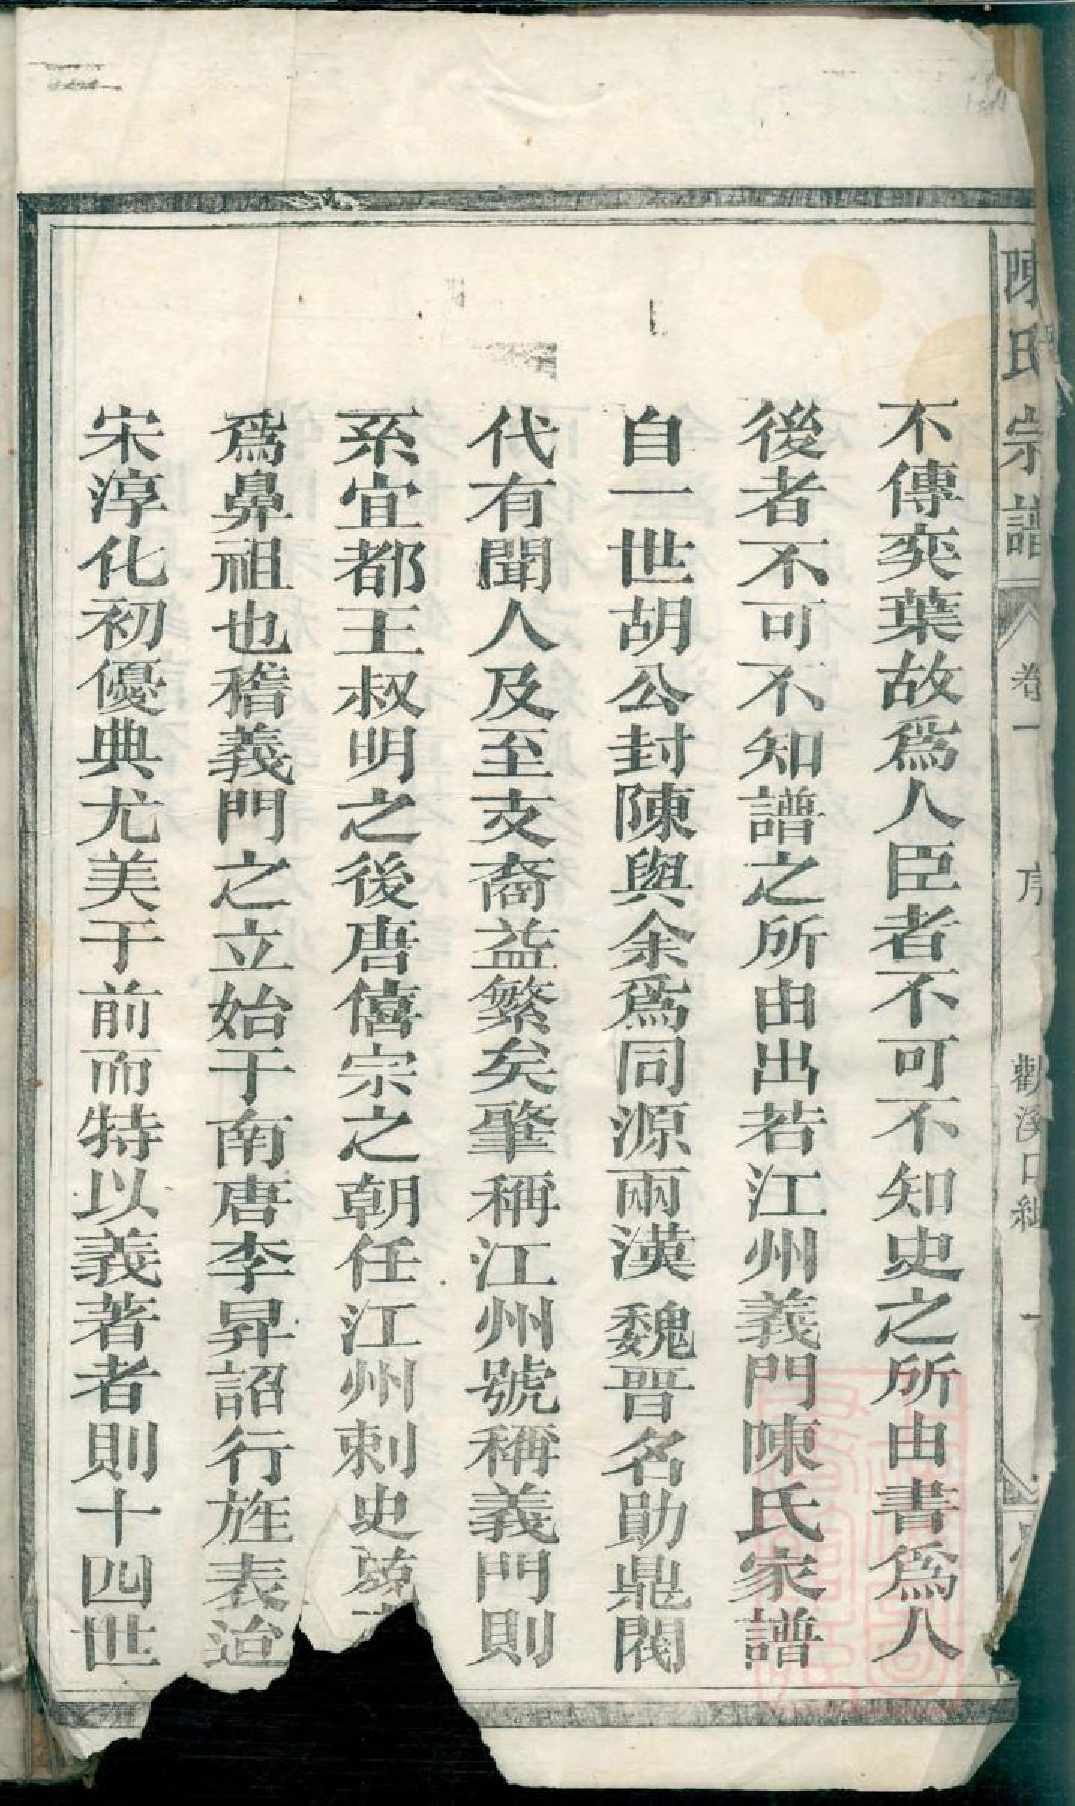 陳氏宗譜 卷一 序 觀溪口 一
不傳奕葉故爲人臣者不可不知史之所由書爲人
後者不可不知譜之所由出若江州義門陳氏家譜
自一世胡公封陳與余爲同源兩漢魏晋名勛鼎閥
代有聞人及至支裔益繁矣肇稱江州號稱義門則
系宜都王叔明之後唐僖宗之朝任江州刺史
爲鼻祖也稽義門之立始于南唐李昇詔行旌表迨
宋淳化初優典尤美于前而特以義著者則十四世